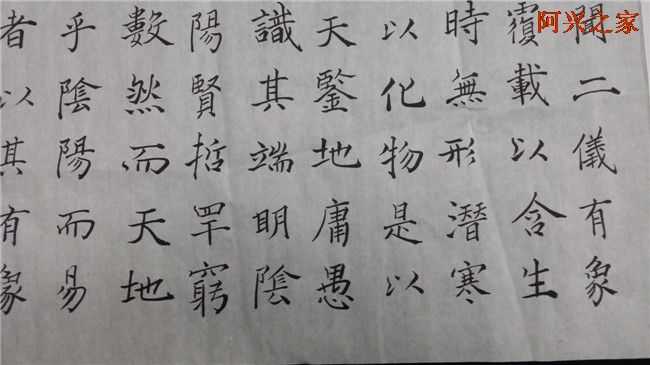 阿兴之家
聞二儀有象
覆載以含生
時無形潛寒
以化物是以
天鑒地庸愚
識其端明陰
陽賢哲罕窮
數然而天地
乎陰陽而易
者以其有象